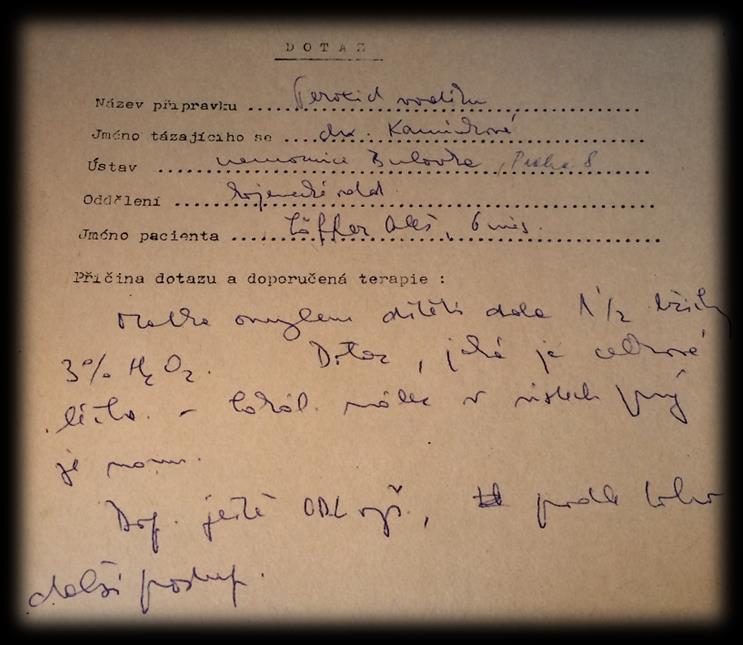 DOTAZ
Název přípravku Peroxid vodíku
Jméno tázajícího se dr. Kamínková
Ústav nemocnice Bulovka, Praha 8
Oddělení kojenecké odd.
Jméno pacienta Löffler Aleš, 6 měs.
Příčina dotazu a doporučená terapie :
Matka omylem dítěti dala 1 1/2 lžičky
3% H2O2. Dotaz, jaká je celková
léčba. - lokál. nález v ústech prý
je norm.
Dop. ještě ORL vyš., podle toho
další postup.